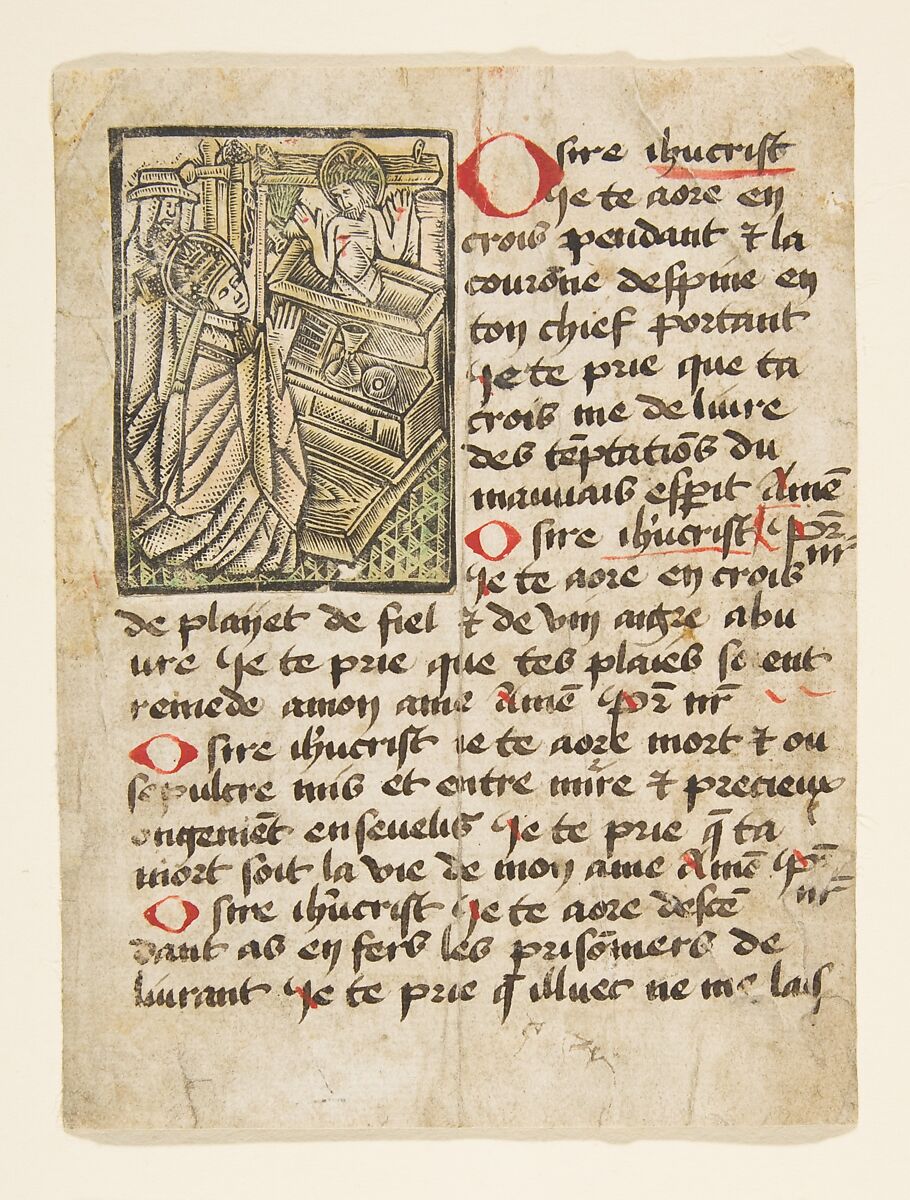 O sire ihucrist
Je te aore en
crois pendant ⁊ la
courōne despine en
ton chief portant
Je te prie que ta
crois me deliure
des tēptatiōs du
mauuais esperit Amē
O sire ihucrist pr̄
nr̄
Je te aore en crois
de playet de fiel ⁊ de vin aigre abu
ure Je te prie que tes plaies soient
remede a mon ame Amē pr̄ nr̄
O sire ihucrist ie te aore mort ⁊ ou
sepulcre mis et entre mirre ⁊ precieux
ongemēt enseuelis Je te prie q̄ ta
mort soit la vie de mon ame Amē pr̄
nr̄
O sire ihucrist Je te aore descē
dant as enfers les prisōniers de
liurant Je te prie q̄ illuec ne me lais